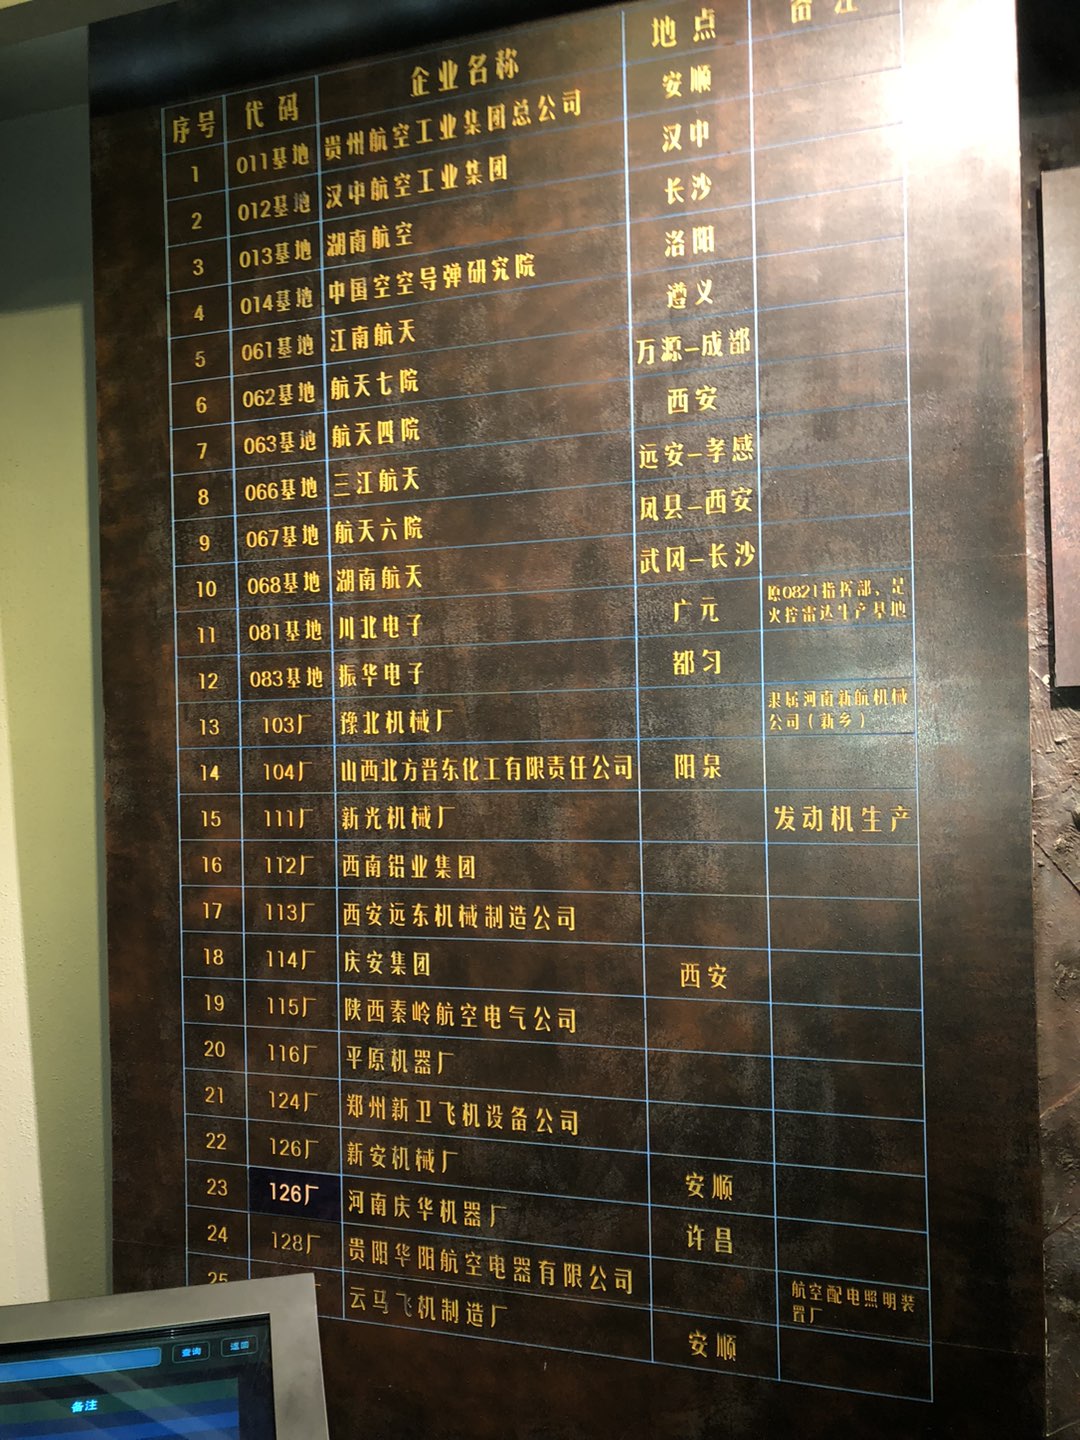 序号 代码 企业名称 地点 备注
1 011基地 贵州航空工业集团总公司 安顺
2 012基地 汉中航空工业集团 汉中
3 013基地 湖南航空 长沙
4 014基地 中国空空导弹研究院 洛阳
5 061基地 江南航天 遵义
6 062基地 航天七院 万源-成都
7 063基地 航天四院 西安
8 066基地 三江航天 远安-孝感
9 067基地 航天六院 凤县-西安
10 068基地 湖南航天 武冈-长沙
11 081基地 川北电子 广元 原0821指挥部,是
火控雷达生产基地
12 083基地 振华电子 都匀
13 103厂 豫北机械厂 隶属河南新航机械
公司（新乡）
14 104厂 山西北方晋东化工有限责任公司 阳泉
15 111厂 新光机械厂 发动机生产
16 112厂 西南铝业集团
17 113厂 西安远东机械制造公司
18 114厂 庆安集团 西安
19 115厂 陕西秦岭航空电气公司
20 116厂 平原机器厂
21 124厂 郑州新卫飞机设备公司
22 126厂 新安机械厂 安顺
23 126厂 河南庆华机器厂 许昌
24 128厂 贵阳华阳航空电器有限公司 航空配电照明装
置厂
25 云马飞机制造厂 安顺
查询 返回
备注